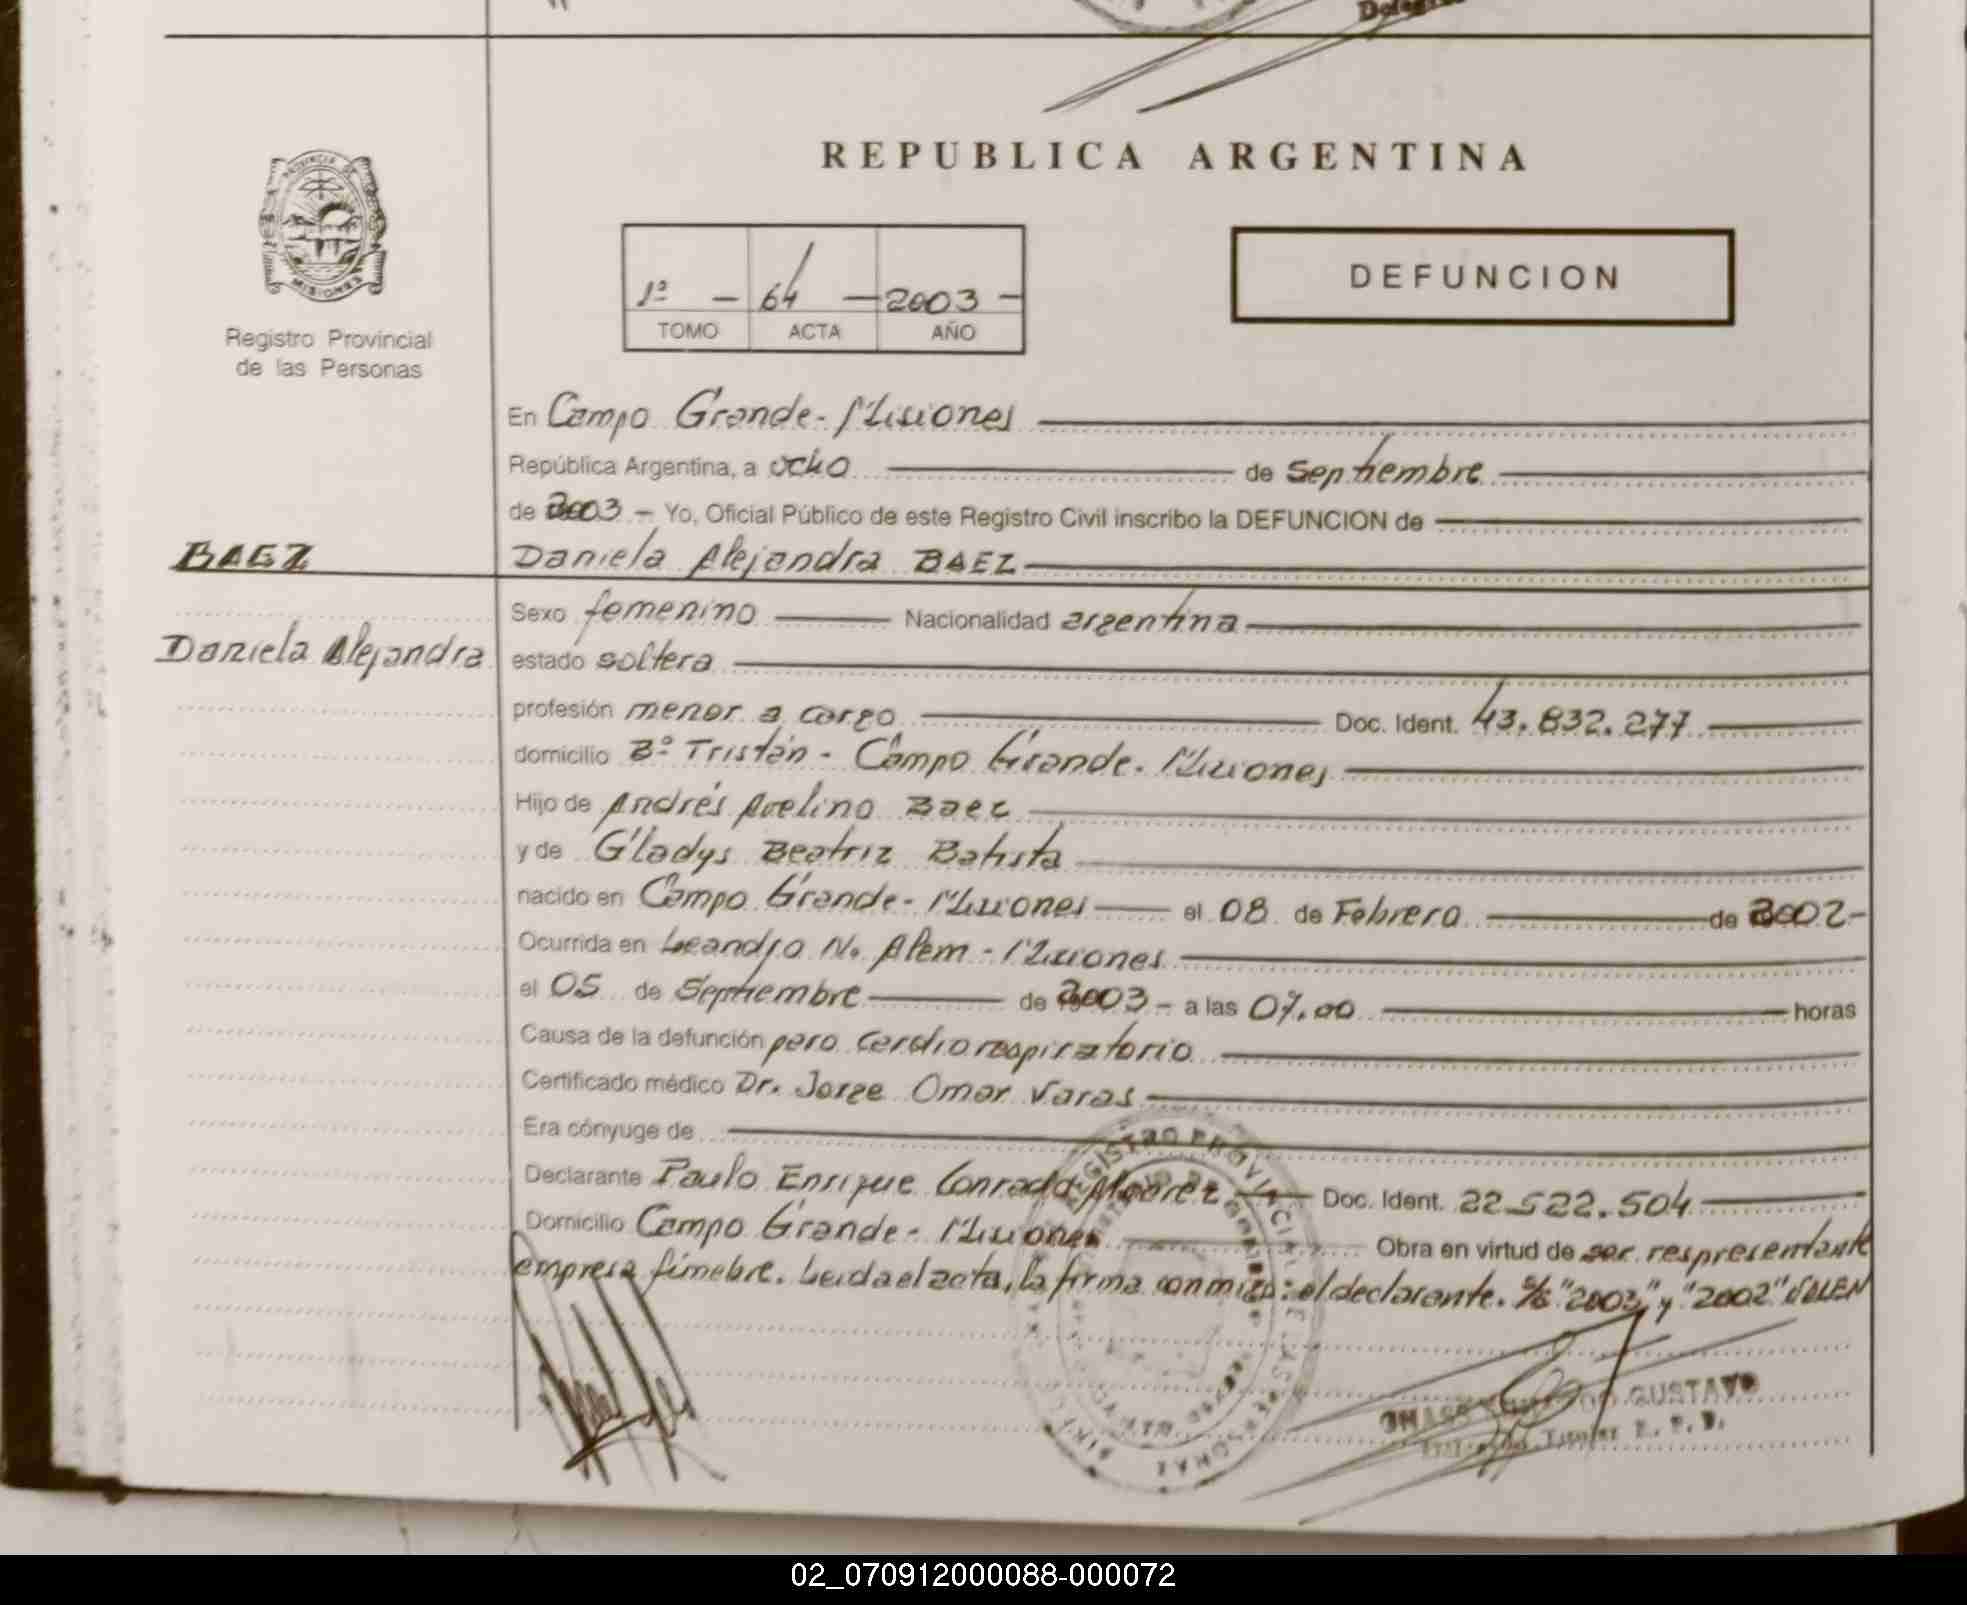 REPUBLICA ARGENTINA
PROVINCIA DE
MISIONES
Registro Provincial
de las Personas
1º - 64 - 2003 -
TOMO ACTA AÑO
DEFUNCION
En Campo Grande - Misiones
República Argentina, a ocho de Septiembre
de 2003 - Yo, Oficial Público de este Registro Civil inscribo la DEFUNCION de
BAEZ
Daniela Alejandra BAEZ
Sexo femenino Nacionalidad argentina
Daniela Alejandra
estado soltera
profesión menor a cargo Doc. Ident. 43.832.277
domicilio Bº Tristán - Campo Grande - Misiones
Hijo de Andrés Avelino Baez
y de Gladys Beatriz Batista
nacido en Campo Grande - Misiones el 08 de Febrero de 2002-
Ocurrida en Leandro N. Alem - Misiones
el 05 de Septiembre de 2003 - a las 07.00 horas
Causa de la defunción paro cardiorrespiratorio
Certificado médico Dr. Jorge Omar Varas
Era cónyuge de
Declarante Paulo Enrique Conrado Alvarez Doc. Ident. 22.522.504
Domicilio Campo Grande - Misiones Obra en virtud de ser respresentante
empresa fúnebre. Leida el acta, la firma conmigo: el declarante. S/b "2003" y "2002" VALEN
REGISTRO PROVINCIAL DE LAS PERSONAS
GUSTAVO
Titular R. P. P.
02_070912000088-000072